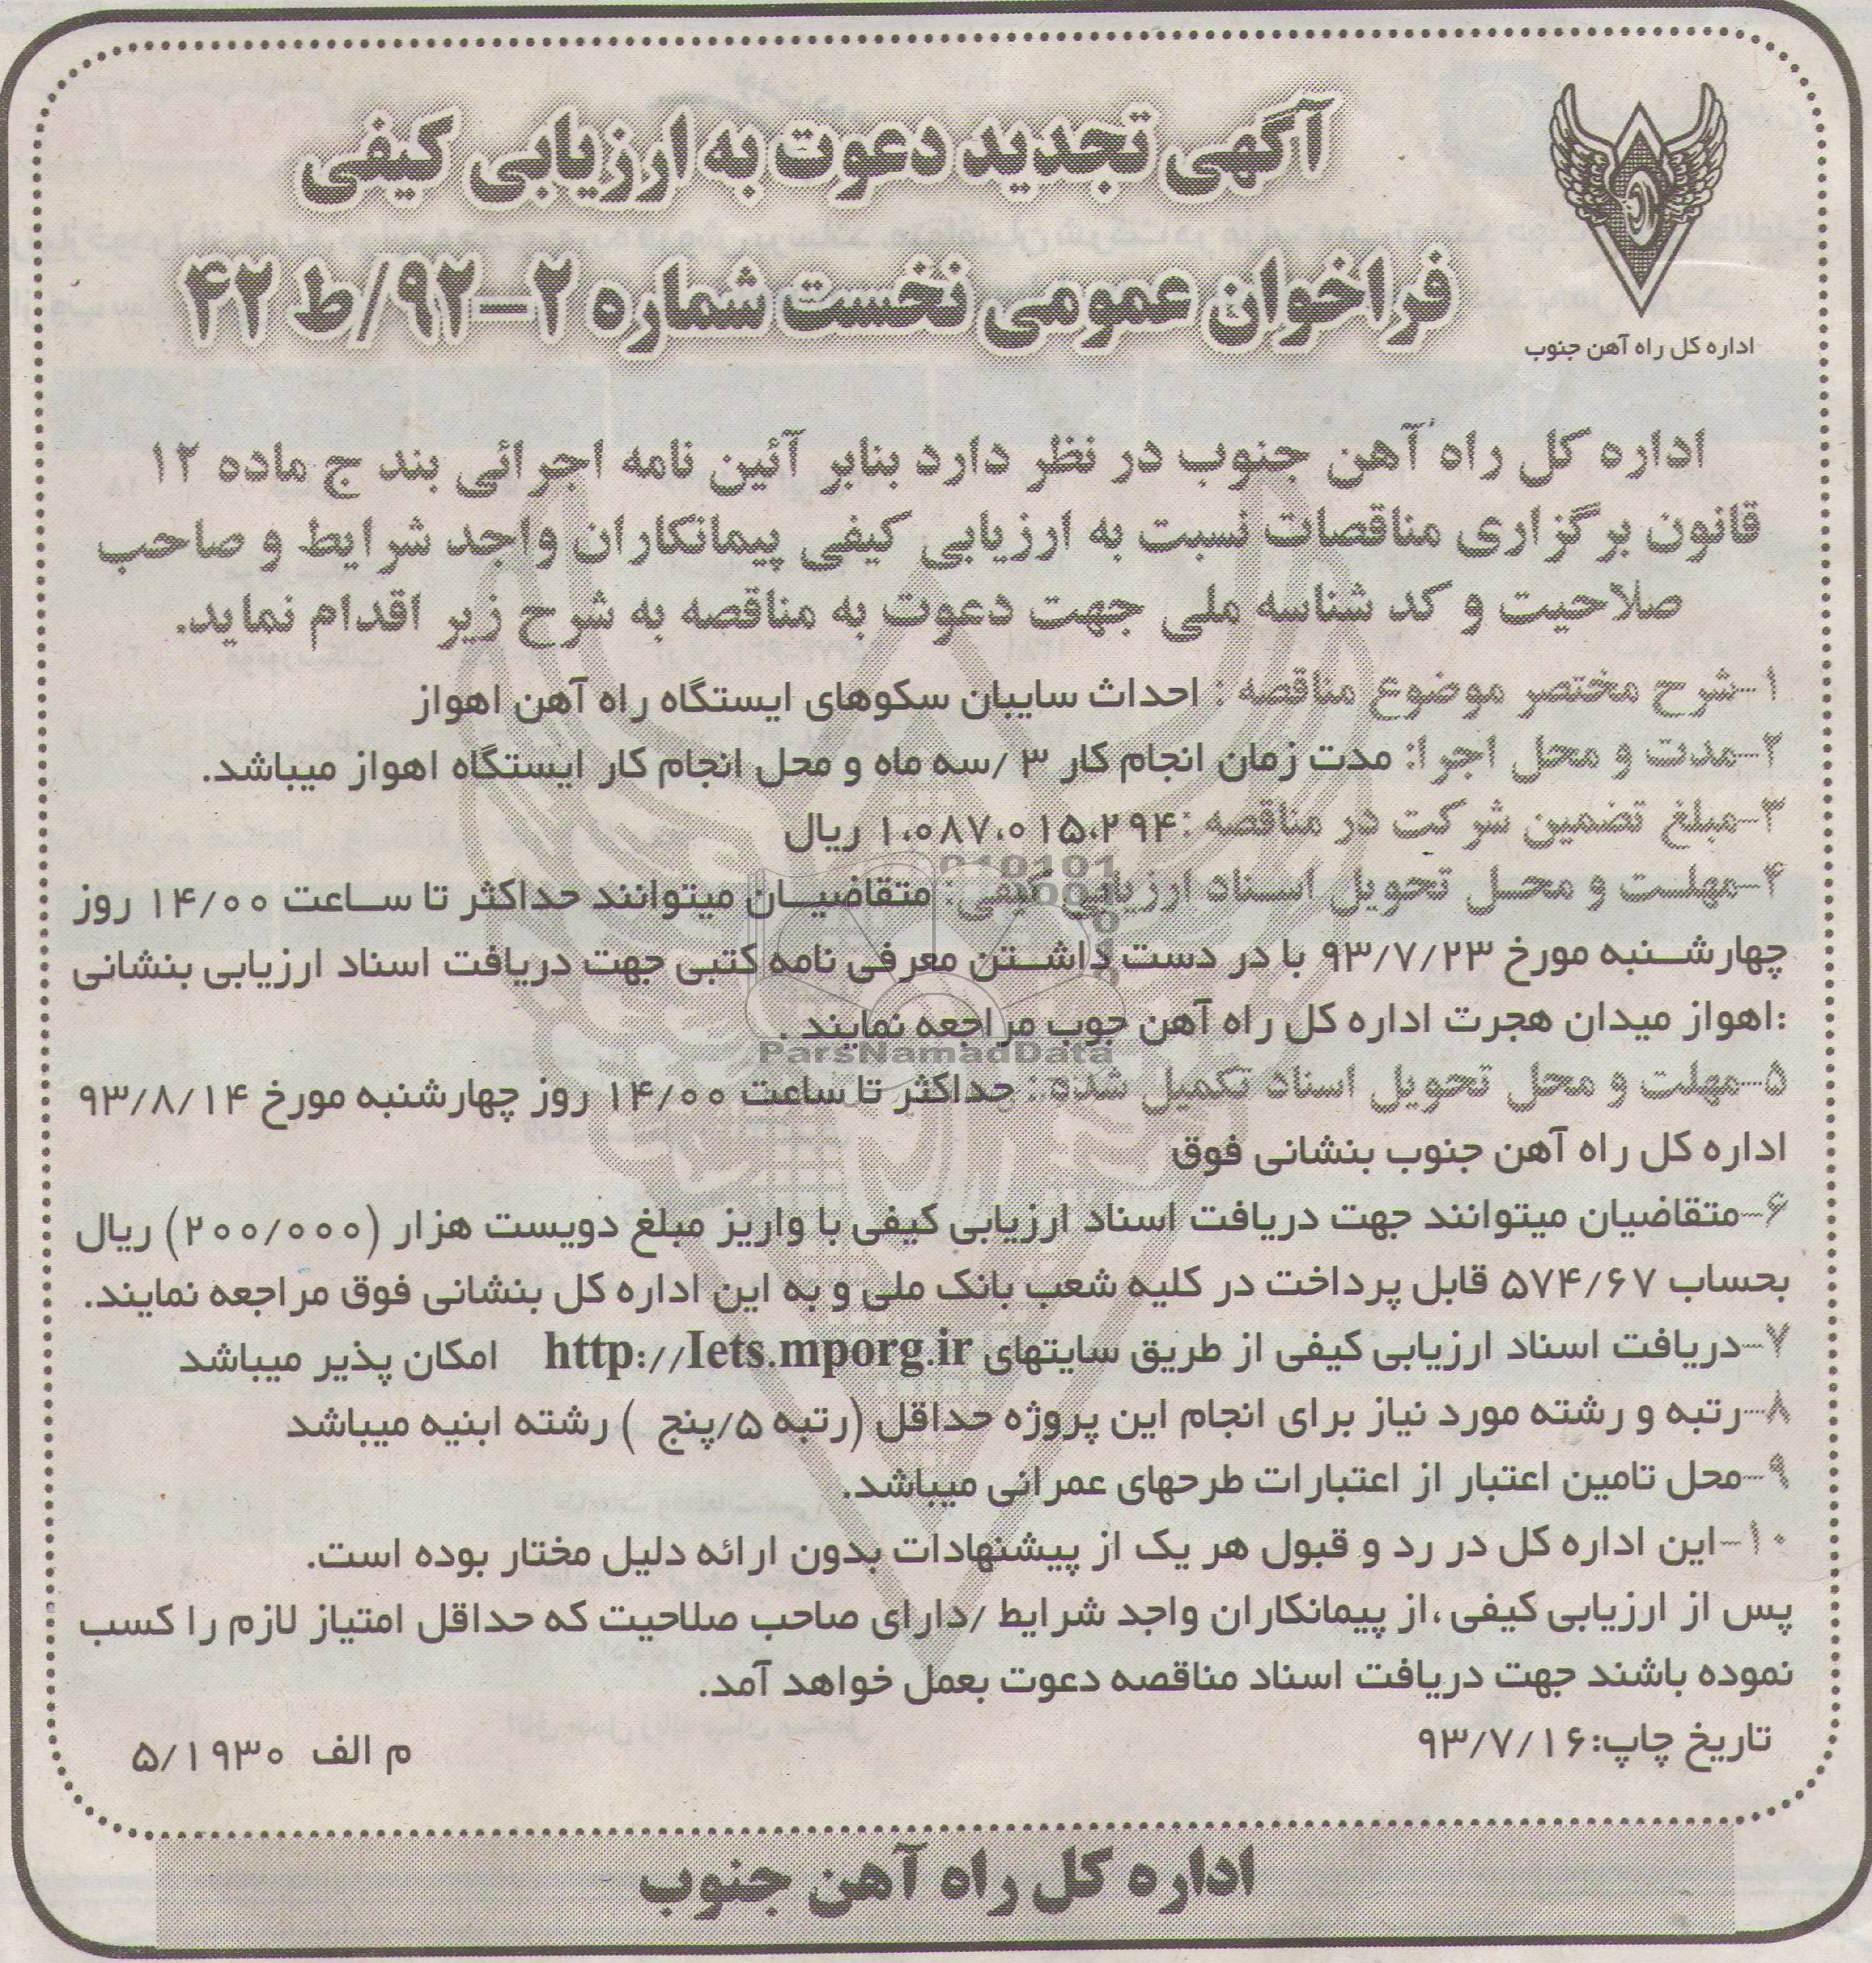 آگهی تجدید دعوت به ارزیابی کیفی
فراخوان عمومی نخست شماره ۲-۹۲/ط ۴۲
اداره کل راه آهن جنوب
اداره کل راه آهن جنوب در نظر دارد بنابر آئین نامه اجرائی بند ج ماده ۱۲
قانون برگزاری مناقصات نسبت به ارزیابی کیفی پیمانکاران واجد شرایط و صاحب
صلاحیت و کد شناسه ملی جهت دعوت به مناقصه به شرح زیر اقدام نماید.
۱-شرح مختصر موضوع مناقصه : احداث سایبان سکوهای ایستگاه راه آهن اهواز
۲-مدت و محل اجرا: مدت زمان انجام کار ۳ /سه ماه و محل انجام کار ایستگاه اهواز میباشد.
۳-مبلغ تضمین شرکت در مناقصه :۱،۰۸۷،۰۱۵،۲۹۴ ریال
۴-مهلت و محل تحویل اسناد ارزیابی کیفی: متقاضیان میتوانند حداکثر تا ساعت ۱۴/۰۰ روز
چهارشنبه مورخ ۹۳/۷/۲۳ با در دست داشتن معرفی نامه کتبی جهت دریافت اسناد ارزیابی بنشانی
:اهواز میدان هجرت اداره کل راه آهن جوب مراجعه نمایند .
۵-مهلت و محل تحویل اسناد تکمیل شده : حداکثر تا ساعت ۱۴/۰۰ روز چهارشنبه مورخ ۹۳/۸/۱۴
اداره کل راه آهن جنوب بنشانی فوق
۶-متقاضیان میتوانند جهت دریافت اسناد ارزیابی کیفی با واریز مبلغ دویست هزار (۲۰۰/۰۰۰) ریال
بحساب ۵۷۴/۶۷ قابل پرداخت در کلیه شعب بانک ملی و به این اداره کل بنشانی فوق مراجعه نمایند.
۷-دریافت اسناد ارزیابی کیفی از طریق سایتهای http://Iets.mporg.ir امکان پذیر میباشد
۸-رتبه و رشته مورد نیاز برای انجام این پروژه حداقل (رتبه ۵/پنج ) رشته ابنیه میباشد
۹-محل تامین اعتبار از اعتبارات طرحهای عمرانی میباشد.
۱۰-این اداره کل در رد و قبول هر یک از پیشنهادات بدون ارائه دلیل مختار بوده است.
پس از ارزیابی کیفی ،از پیمانکاران واجد شرایط /دارای صاحب صلاحیت که حداقل امتیاز لازم را کسب
نموده باشند جهت دریافت اسناد مناقصه دعوت بعمل خواهد آمد.
تاریخ چاپ:۹۳/۷/۱۶
م الف ۵/۱۹۳۰
اداره کل راه آهن جنوب
ParsNamadData